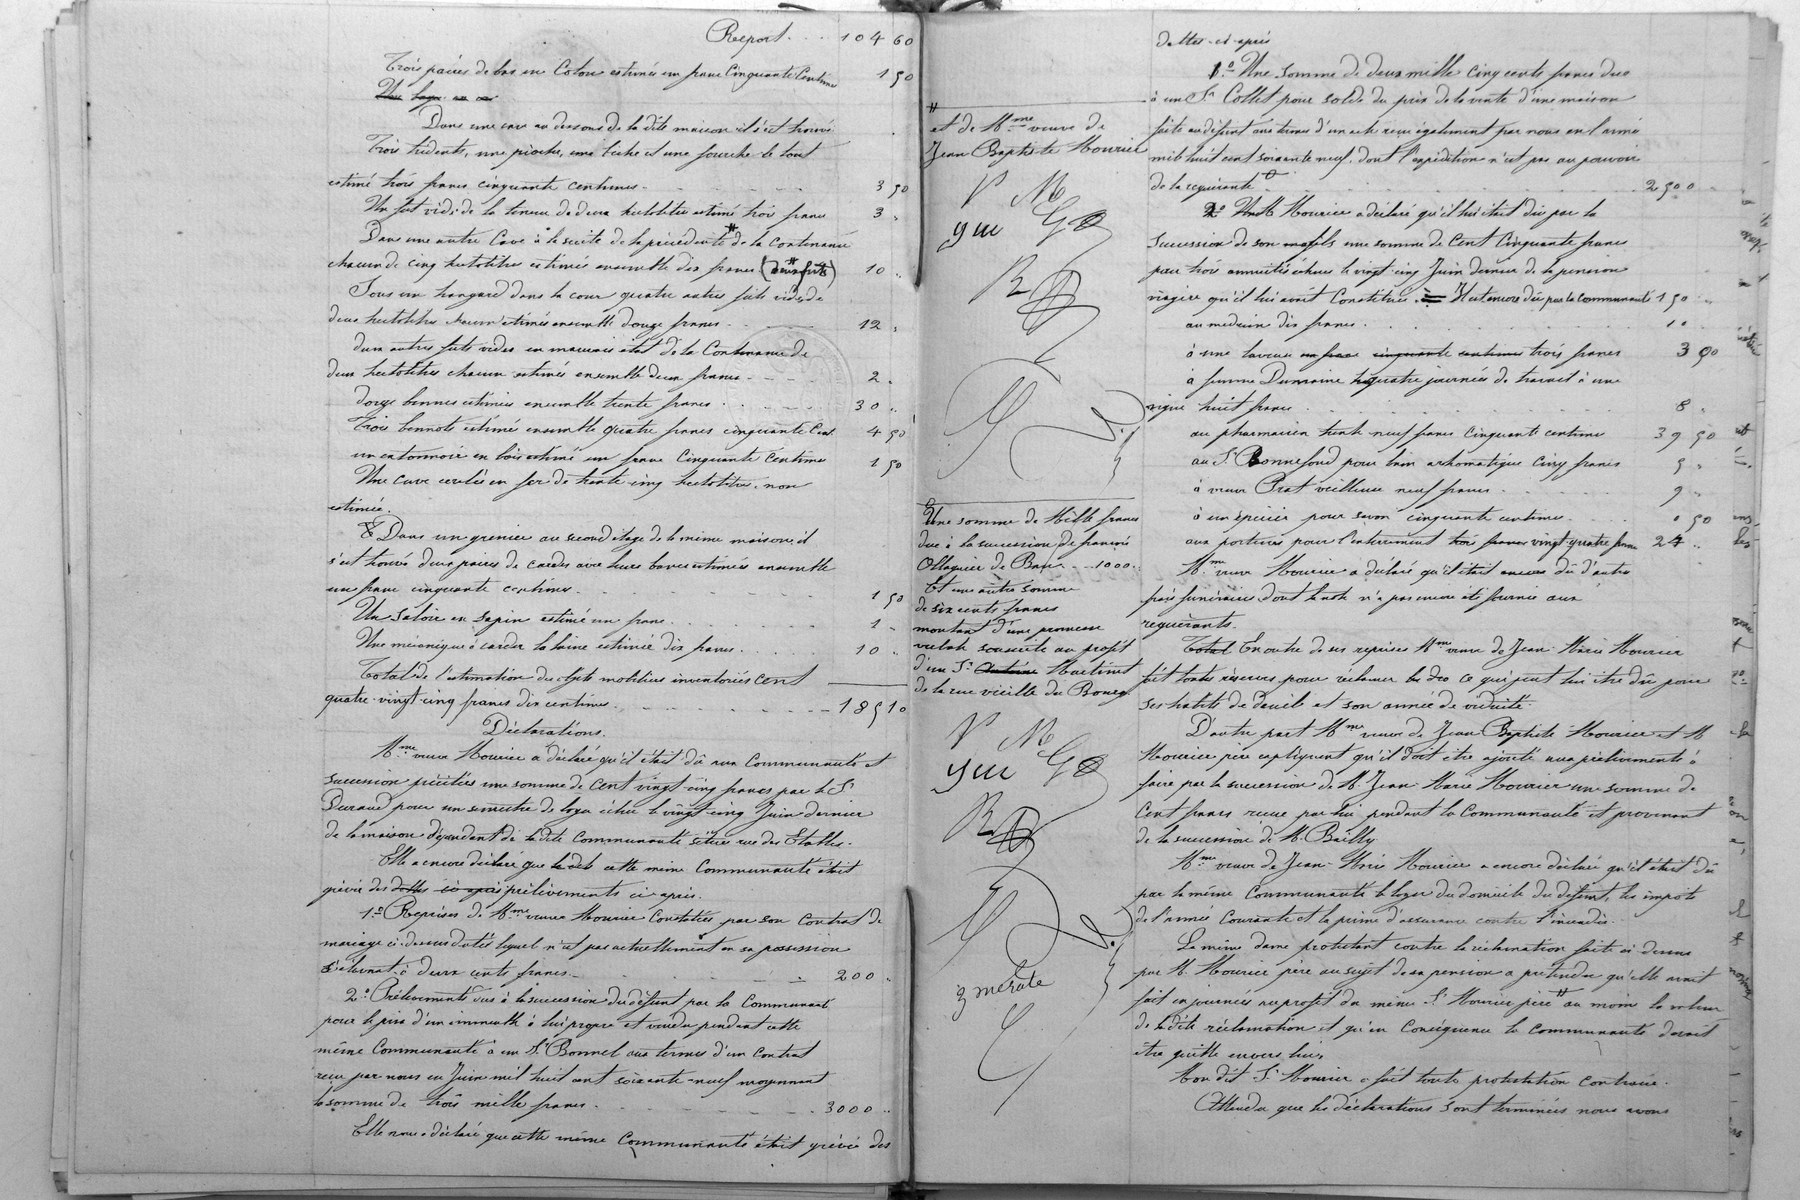 Report . . . 104 60
Trois paires de bas en Coton estimés un franc Cinquante Centimes 1 50
Dans une cave au dessous de la dite maison il s'est trouvé
Trois tridents, une pioche, une bêche et une fourche le tout
estimé trois francs cinquante centimes 3 50
Un fut vide de la teneur de deux hectolitres estimé trois francs 3 "
Dans une autre Cave à la suite de la précédente # de la Contenance
chacun de cinq hectolitres estimés ensemble dix francs (# deux futs) 10 "
Sous un hangard dans la cour quatre autres futs vides de
deux hectolitres chacun estimés ensemble douze francs 12 "
deux autres futs vides en mauvais état de la Contenance de
deux hectolitres chacun estimés ensemble deux francs 2 "
douze bennes estimées ensemble trente francs 30 "
Trois bennots estimé ensemble quatre francs cinquante Cent. 4 50
un entonnoir en bois estimé un franc Cinquante Centimes 1 50
Une cuve cerclée en fer de trente cinq hectolitres, non
estimée.
Dans un grenier au second étage de la même maison, il
s'est trouvé deux paires de cardes avec leurs bancs estimées ensemble
un franc cinquante centimes 1 50
Un saloir en sapin estimé un franc 1 "
Une mécanique à carder la laine estimée dix francs 10 "
Total de l'estimation des objets mobiliers inventoriés cent
quatre-vingt-cinq francs dix centimes 185 10
Déclarations.
Mme veuve Mourier a déclaré qu'il était dû aux Communauté et
succession précitées une somme de Cent vingt-cinq francs par le Sr
Durand pour un semestre de loyer échu le vingt-cinq Juin dernier
de la maison dépendant de la dite Communauté située rue des Etables.
Elle a encore déclaré que cette même Communauté était
grevée des dettes ci après prélèvements ci-après.
1º Reprises de Mme veuve Mourier Constatées par son Contrat de
mariage ci-dessus daté lequel n'est pas actuellement en sa possession
s'élevant à deux cents francs 200 "
2º Prélèvements dus à la succession du défunt par la Communauté
pour le prix d'un immeuble à lui propre et vendu pendant cette
même Communauté à un Sr Bonnel aux termes d'un Contrat
reçu par nous en Juin mil huit cent soixante-neuf moyennant
la somme de trois mille francs 3000 "
Elle nous a déclaré que cette même Communauté était grevée des
dettes ci-après
1.º Une somme de deux mille cinq cents francs due
à un Sr Collet pour solde du prix de la vente d'une maison
faite au défunt aux termes d'un acte reçu également par nous en l'année
mil huit cent soixante neuf, dont l'expédition n'est pas au pouvoir
de la requérante 2500 "
2º M. Mourier a déclaré qu'il lui était dû par la
succession de son fils une somme de Cent Cinquante francs
pour trois annuités échues le vingt-cinq Juin dernier de la pension
viagère qu'il lui avait Constituée. Il est encore dû par la Communauté 150 "
au médecin dix francs 10 "
à une laveuse un franc cinquante centimes trois francs 3 50
à femme Dumaine quatre journées de travail à une
vigne huit francs 8 "
au pharmacien trente neuf francs Cinquante centimes 39 50
au Sr Bonnefond pour bain arhomatique cinq francs 5 "
à veuve Prat veilleuse neuf francs 9 "
à un épicier pour savon cinquante centimes " 50
aux porteurs pour l'enterrement trois francs vingt quatre francs 24 "
Mme veuve Mourier a déclaré qu'il était encore dû d'autres
frais funéraires dont la note n'a pas encore été fournie aux
requérants.
Total En outre de ses reprises Mme veuve de Jean-Marie Mourier
fait toutes réserves pour réclamer ce qui peut lui être dû pour
ses habits de deuil et son année de viduité.
D'autre part Mme veuve de Jean Baptiste Mourier et M.
Mourier père expliquent qu'il doit être ajouté aux prélèvements à
faire par la succession de M. Jean-Marie Mourier une somme de
Cent francs reçue par lui pendant la Communauté et provenant
de la succession de M. Bailly.
Mme veuve de Jean-Marie Mourier a encore déclaré qu'il était dû
par la même Communauté le loyer du domicile du défunt, les impôts
de l'année Courante et la prime d'assurance contre l'incendie.
La même dame protestant contre la réclamation faite ci dessus
par M. Mourier père au sujet de sa pension a prétendu qu'elle avait
fait en journées au profit du même Sr Mourier père # au moins la valeur
de la dite réclamation et qu'en Conséquence la communauté devait
être quitte envers lui.
Mon dit Sr Mourier a fait toute protestation contraire.
Attendu que les déclarations sont terminées nous avons
#
et de Mme veuve de
Jean Baptiste Mourier
Une somme de Mille francs
due à la succession de francois
Ollagnier de Bas 1000 "
Et une autre somme
de six cents francs
montant d'une promesse
verbale souscrite au profit
d'un Sr Antoine Martinet
de la rue vieille du Bourg